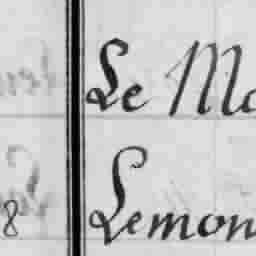 Le Mo
8 Lemon